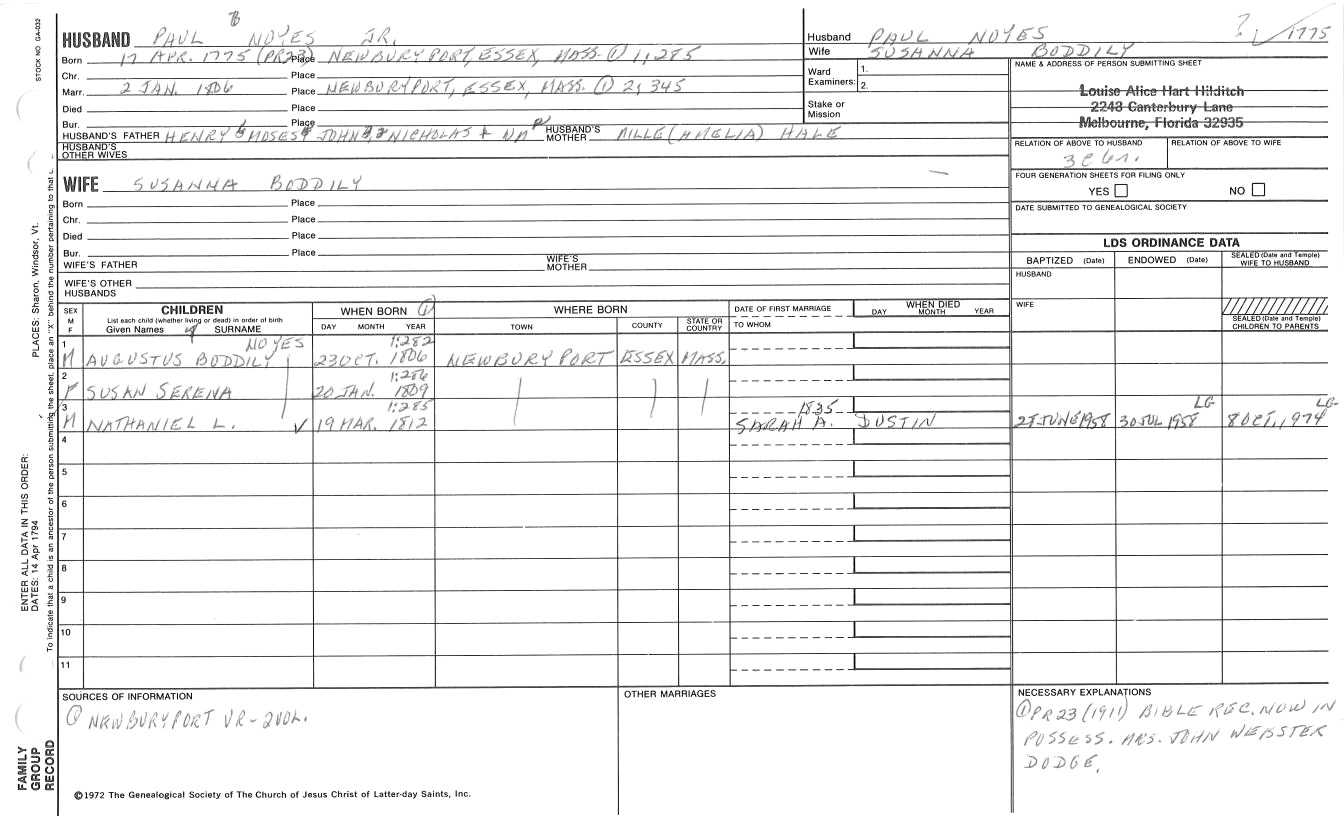 STOCK NO GA-032
HUSBAND PAUL 6 NOYES JR.
Born 17 APR. 1775 (PR23) Place NEWBURYPORT, ESSEX, MASS. ① 1:285
Chr. Place
Marr. 2 JAN. 1806 Place NEWBURYPORT, ESSEX, MASS. ① 2:345
Died Place
Bur. Place
HUSBAND'S FATHER HENRY 5 MOSES 4 JOHN 3, 2 NICHOLAS 1 HUSBAND'S MOTHER MILLE (AMELIA) HALE
HUSBAND'S OTHER WIVES
Husband PAUL NOYES ? 1775
Wife SUSANNA BODDILY
Ward Examiners: 1.
2.
Stake or Mission
NAME & ADDRESS OF PERSON SUBMITTING SHEET
Louise Alice Hart Hilditch
2243 Canterbury Lane
Melbourne, Florida 32935
RELATION OF ABOVE TO HUSBAND RELATION OF ABOVE TO WIFE
FOUR GENERATION SHEETS FOR FILING ONLY
YES NO
DATE SUBMITTED TO GENEALOGICAL SOCIETY
WIFE SUSANNA BODDILY
Born Place
Chr. Place
Died Place
Bur. Place
WIFE'S FATHER WIFE'S MOTHER
WIFE'S OTHER HUSBANDS
LDS ORDINANCE DATA
BAPTIZED (Date) ENDOWED (Date) SEALED (Date and Temple) WIFE TO HUSBAND
HUSBAND
WIFE
SEALED (Date and Temple) CHILDREN TO PARENTS
SEX M F CHILDREN List each child (whether living or dead) in order of birth Given Names SURNAME
WHEN BORN ① DAY MONTH YEAR
WHERE BORN TOWN COUNTY STATE OR COUNTRY
DATE OF FIRST MARRIAGE TO WHOM
WHEN DIED DAY MONTH YEAR
NOYES 1:282
1 M AUGUSTUS BODDILY 23 OCT. 1806 NEWBURYPORT ESSEX MASS.
1:286
2 F SUSAN SERENA 20 JAN. 1809
1:285 1835 LG LG
3 M NATHANIEL L. ✓ 19 MAR. 1812 SARAH A. DUSTIN 27 JUNE 1958 30 JUL 1958 8 OCT. 1974
4
5
6
7
8
9
10
11
SOURCES OF INFORMATION
① NEWBURYPORT VR - 2 VOL.
OTHER MARRIAGES
NECESSARY EXPLANATIONS
① PR23 (1911) BIBLE REC. NOW IN
POSSESS. MRS. JOHN WEBSTER
DODGE.
©1972 The Genealogical Society of The Church of Jesus Christ of Latter-day Saints, Inc.
PLACES: Sharon, Windsor, Vt.
ENTER ALL DATA IN THIS ORDER:
DATES: 14 Apr 1794
To indicate that a child is an ancestor of the person submitting the sheet, place an "X" behind the number pertaining to that
FAMILY
GROUP
RECORD